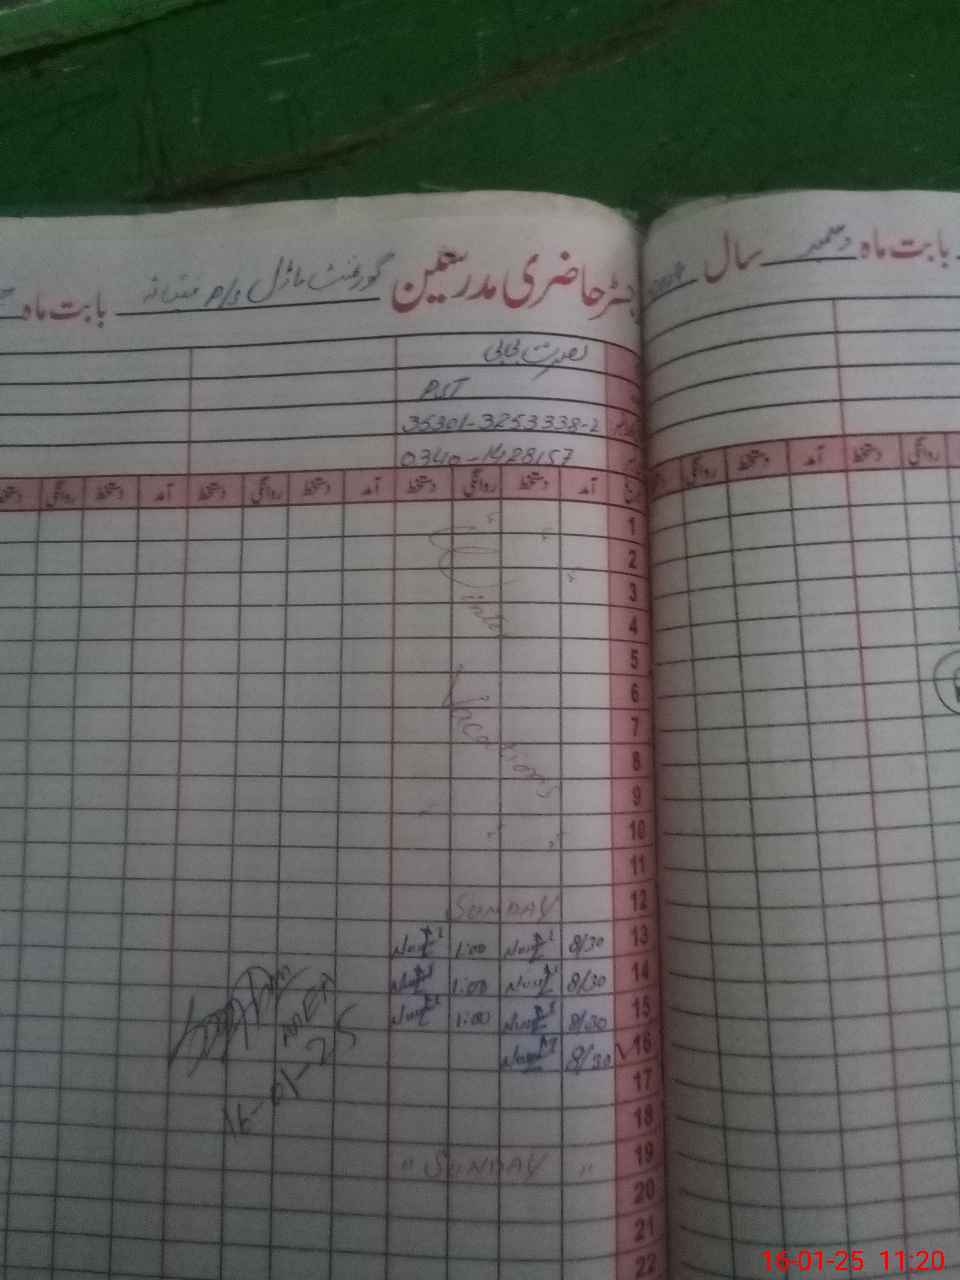 رجسٹر حاضری مدرسین گورنمنٹ ماڈل بابت ماہ
بابت ماہ دسمبر سال
PST
35301-3253338-2
0340-1428157
آمد دستخط روانگی دستخط آمد دستخط روانگی دستخط آمد دستخط روانگی
روانگی دستخط آمد دستخط روانگی
1
2
3
Winter
4
5
6
Vacations
7
8
9
10
11
12 SUNDAY
13 8/30 1:00
14 8/30 1:00
15 8/30 1:00
16 8/30
MEA
16-01-25
17
18
19 " SUNDAY "
20
21
22
16-01-25 11:20